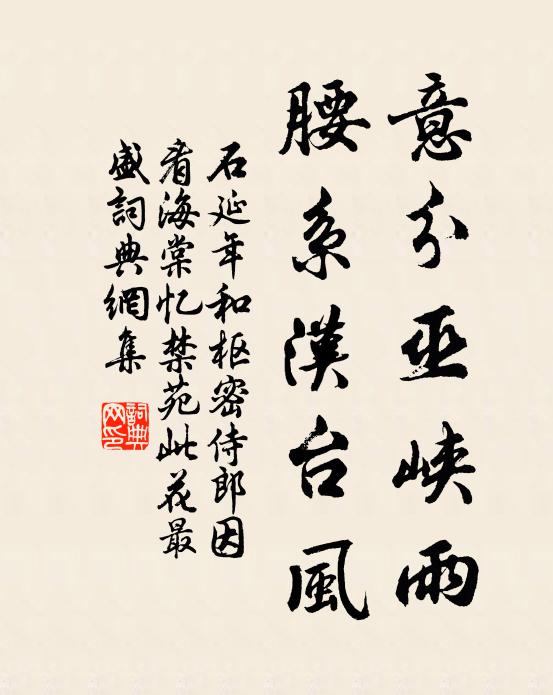 意分巫峡雨
腰系漢台風
石延年和枢密侍郎因
看海棠忆禁苑此花最
盛詞典網集
詞典网印